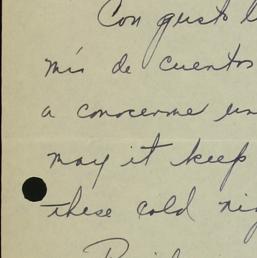 Con gusto l
mis de cuentos
a conocerme un
may it keep
these cold nig